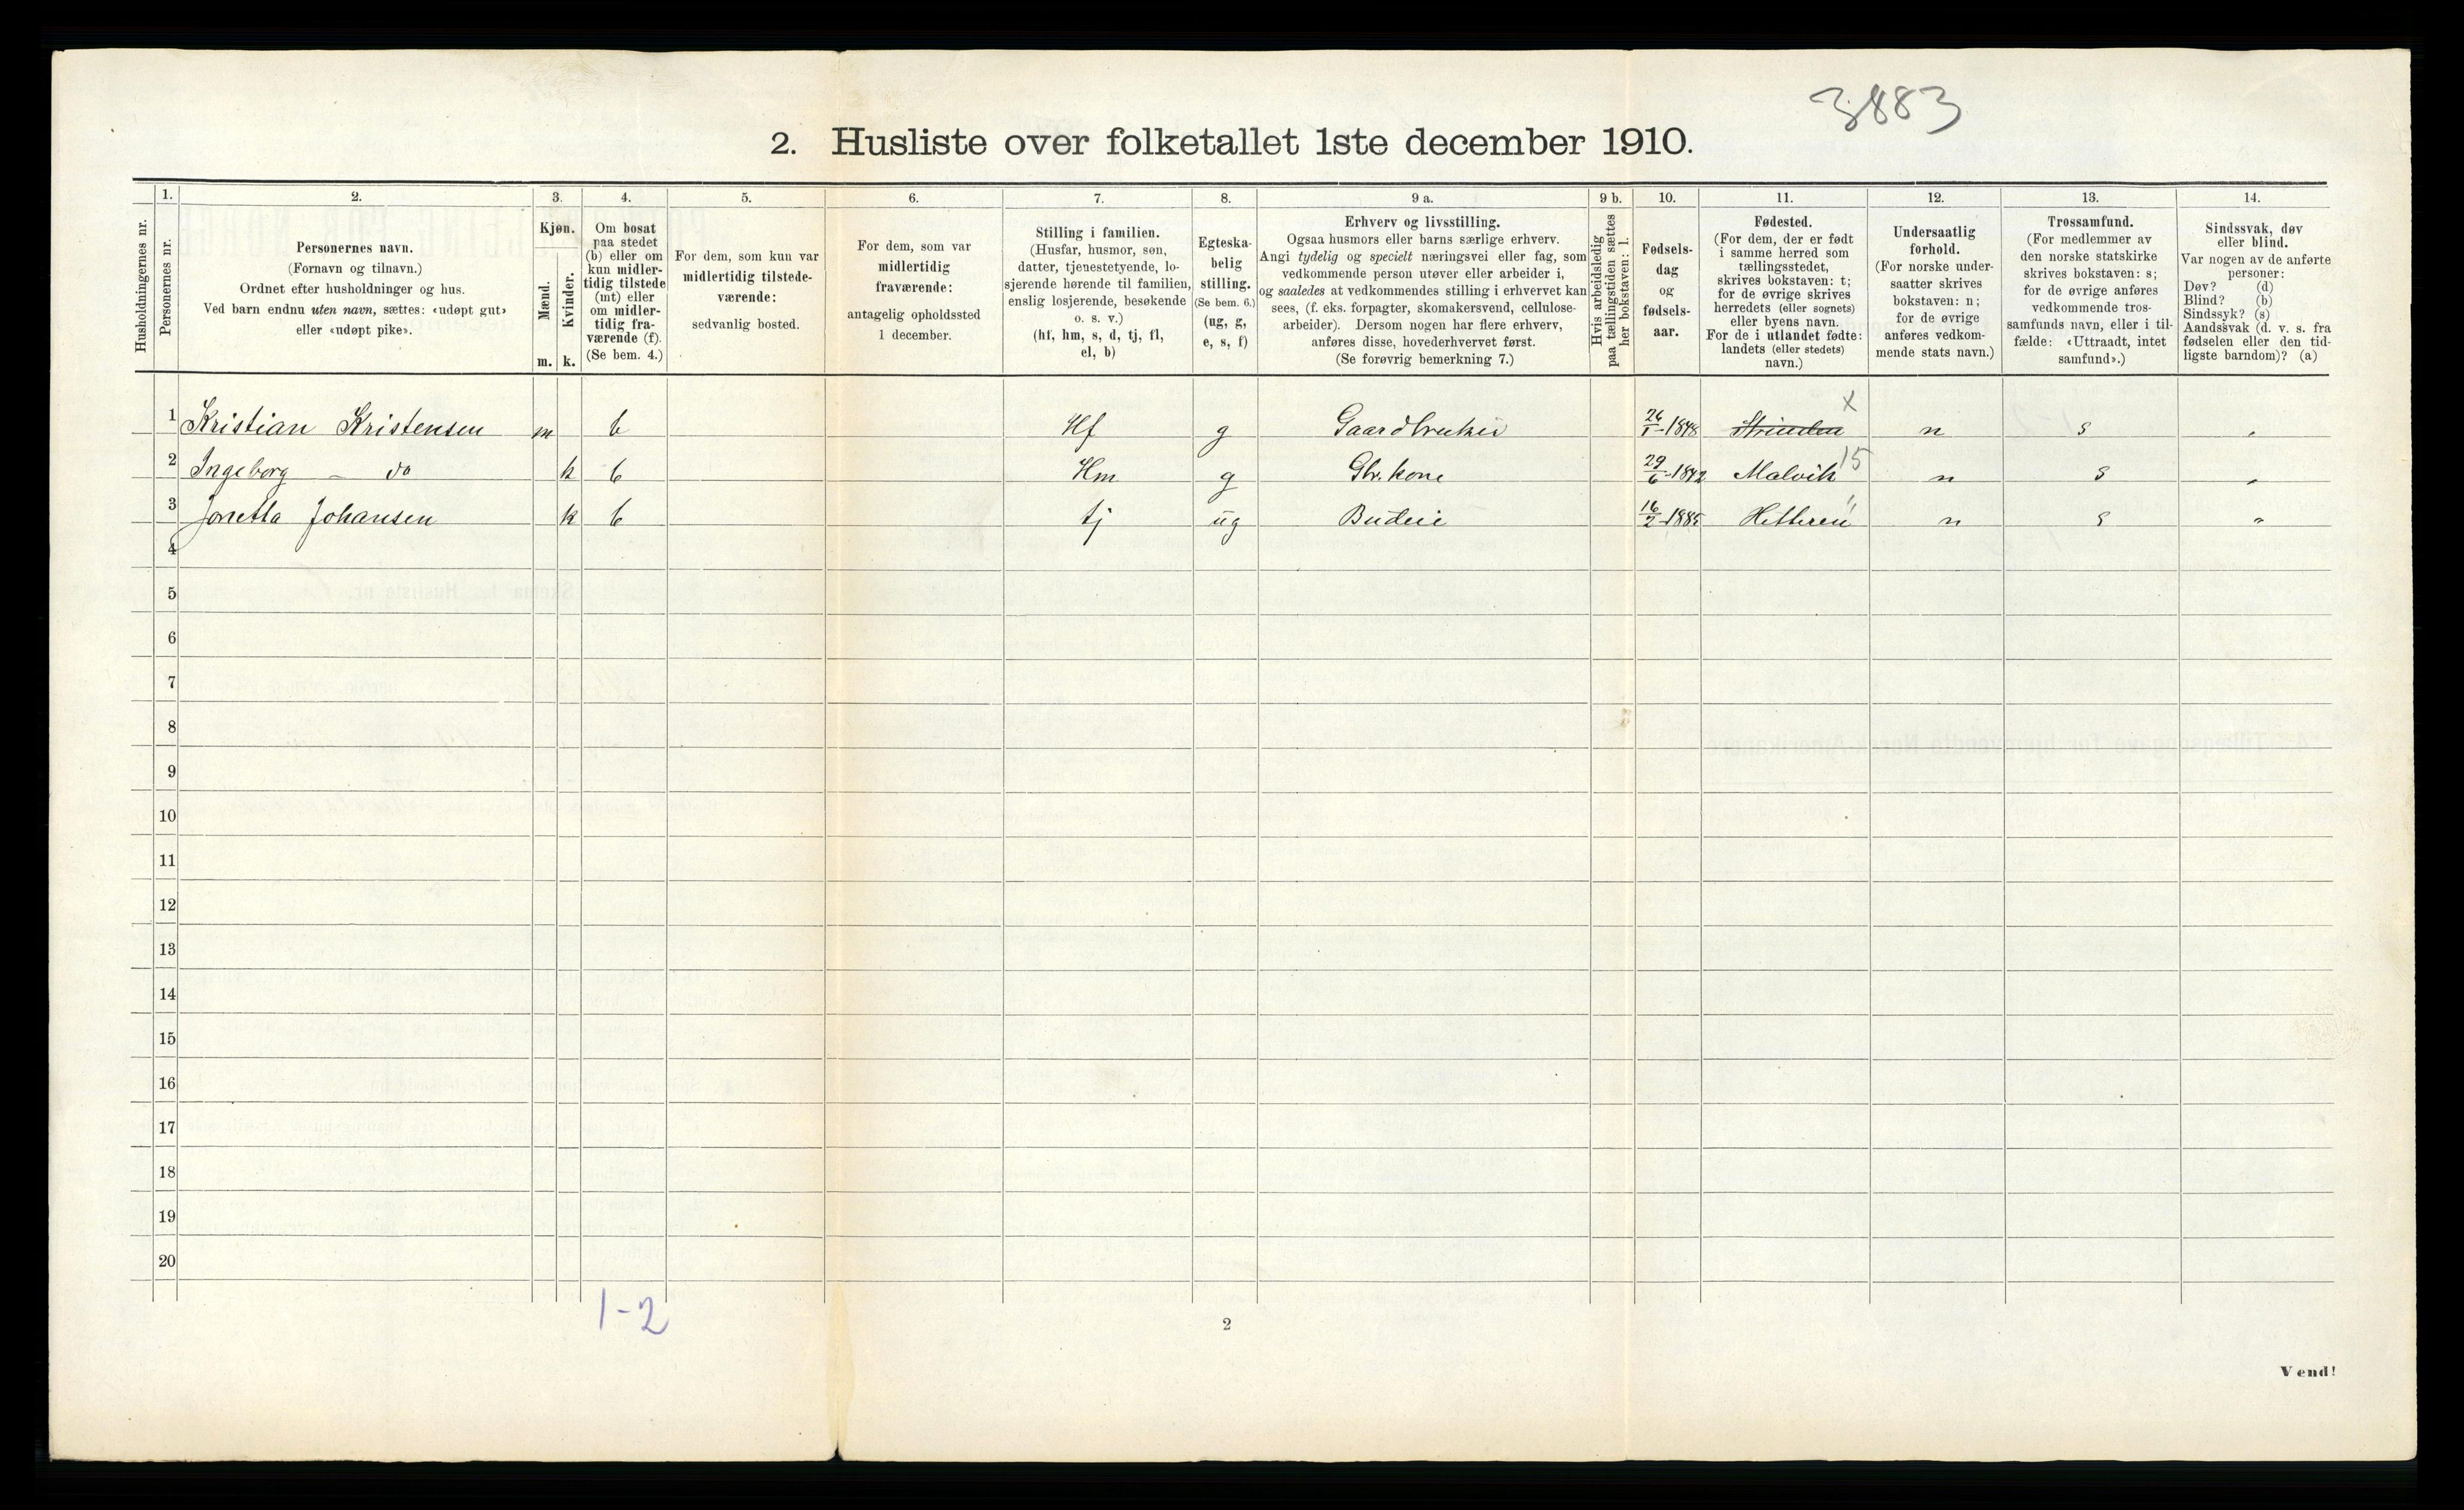 3883
2. Husliste over folketallet 1ste december 1910.
Husholdningernes nr.
1.
Personernes nr.
2.
Personernes navn.
(Fornavn og tilnavn.)
Ordnet efter husholdninger og hus.
Ved barn endnu uten navn, sættes: «udøpt gut»
eller «udøpt pike».
3.
Kjøn.
Mænd.
Kvinder.
m. k.
4.
Om bosat
paa stedet
(b) eller om
kun midler-
tidig tilstede
(mt) eller
om midler-
tidig fra-
værende (f).
(Se bem. 4.)
5.
For dem, som kun var
midlertidig tilstede-
værende:
sedvanlig bosted.
6.
For dem, som var
midlertidig
fraværende:
antagelig opholdssted
1 december.
7.
Stilling i familien.
(Husfar, husmor, søn,
datter, tjenestetyende, lo-
sjerende hørende til familien,
enslig losjerende, besøkende
o. s. v.)
(hf, hm, s, d, tj, fl,
el, b)
8.
Egteska-
belig
stilling.
(Se bem. 6.)
(ug, g,
e, s, f)
9 a.
Erhverv og livsstilling.
Ogsaa husmors eller barns særlige erhverv.
Angi tydelig og specielt næringsvei eller fag, som
vedkommende person utøver eller arbeider i,
og saaledes at vedkommendes stilling i erhvervet kan
sees, (f. eks. forpagter, skomakersvend, cellulose-
arbeider). Dersom nogen har flere erhverv,
anføres disse, hovederhvervet først.
(Se forøvrig bemerkning 7.)
9 b.
Hvis arbeidsledig
paa tællingstiden sættes
her bokstaven: l.
10.
Fødsels-
dag
og
fødsels-
aar.
11.
Fødested.
(For dem, der er født
i samme herred som
tællingsstedet,
skrives bokstaven: t;
for de øvrige skrives
herredets (eller sognets)
eller byens navn.
For de i utlandet fødte:
landets (eller stedets)
navn.)
12.
Undersaatlig
forhold.
(For norske under-
saatter skrives
bokstaven: n;
for de øvrige
anføres vedkom-
mende stats navn.)
13.
Trossamfund.
(For medlemmer av
den norske statskirke
skrives bokstaven: s;
for de øvrige anføres
vedkommende tros-
samfunds navn, eller i til-
fælde: «Uttraadt, intet
samfund».)
14.
Sindssvak, døv
eller blind.
Var nogen av de anførte
personer:
Døv? (d)
Blind? (b)
Sindssyk? (s)
Aandssvak (d. v. s. fra
fødselen eller den tid-
ligste barndom)? (a)
1 Kristian Kristensen m b Hf g Gaardbruker 26/1-1848 Strinden x n s "
2 Ingeborg – do k b Hm g Gbr. kone 29/6-1842 Malvik 15 n s "
3 Jonetta Johansen k b tj ug Budeie 16/2-1885 Hitteren " n s "
4
5
6
7
8
9
10
11
12
13
14
15
16
17
18
19
20
1-2
2
Vend!